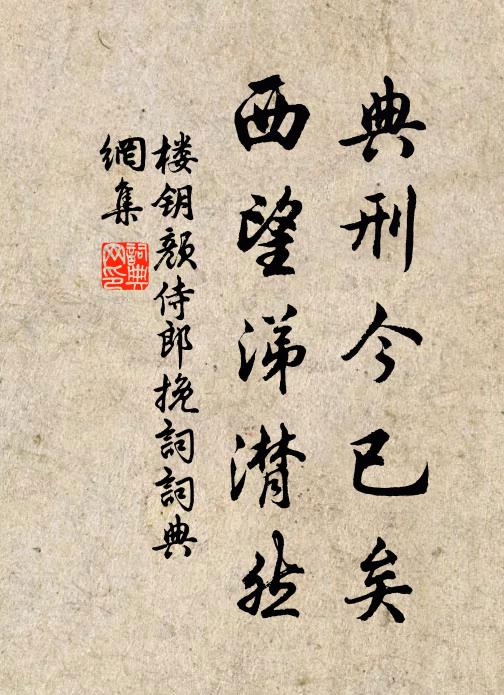 典刑今已矣
西望涕潸然
楼钥颜侍郎挽词词典
網集
詞典
网印